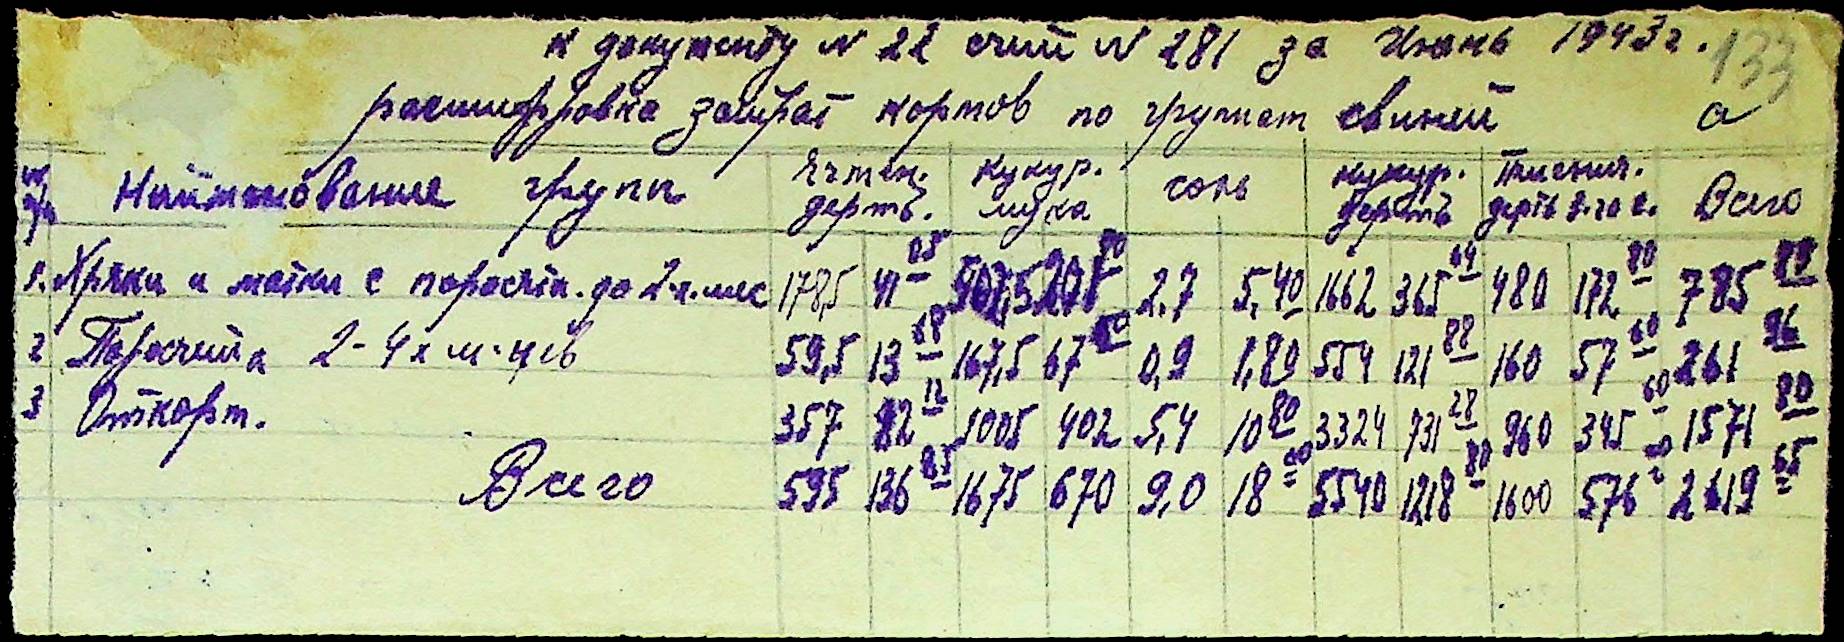 к документу N 22 счит N 281 за Июнь 1943 г. 133
расшифровка затрат кормов по группам свиней а
Наименование групп Ячмен. дерть. кукур. мука соль кукур. дерть Пшенич. дерть 2-го с. Всего
1. Хряки и матки с поросят. до 2х мес 178,5 41 05 502,5 201 00 2,7 5,40 1662 365 64 480 172 80 785 89
2 Поросята 2-4х м-цев 59,5 13 68 167,5 67 00 0,9 1,80 554 121 88 160 57 60 261 96
3 Откорм. 357 82 12 1005 402 5,4 10 80 3324 731 28 960 345 60 1571 80
Всего 595 136 85 1675 670 9,0 18 00 5540 1218 80 1600 576 00 2619 65